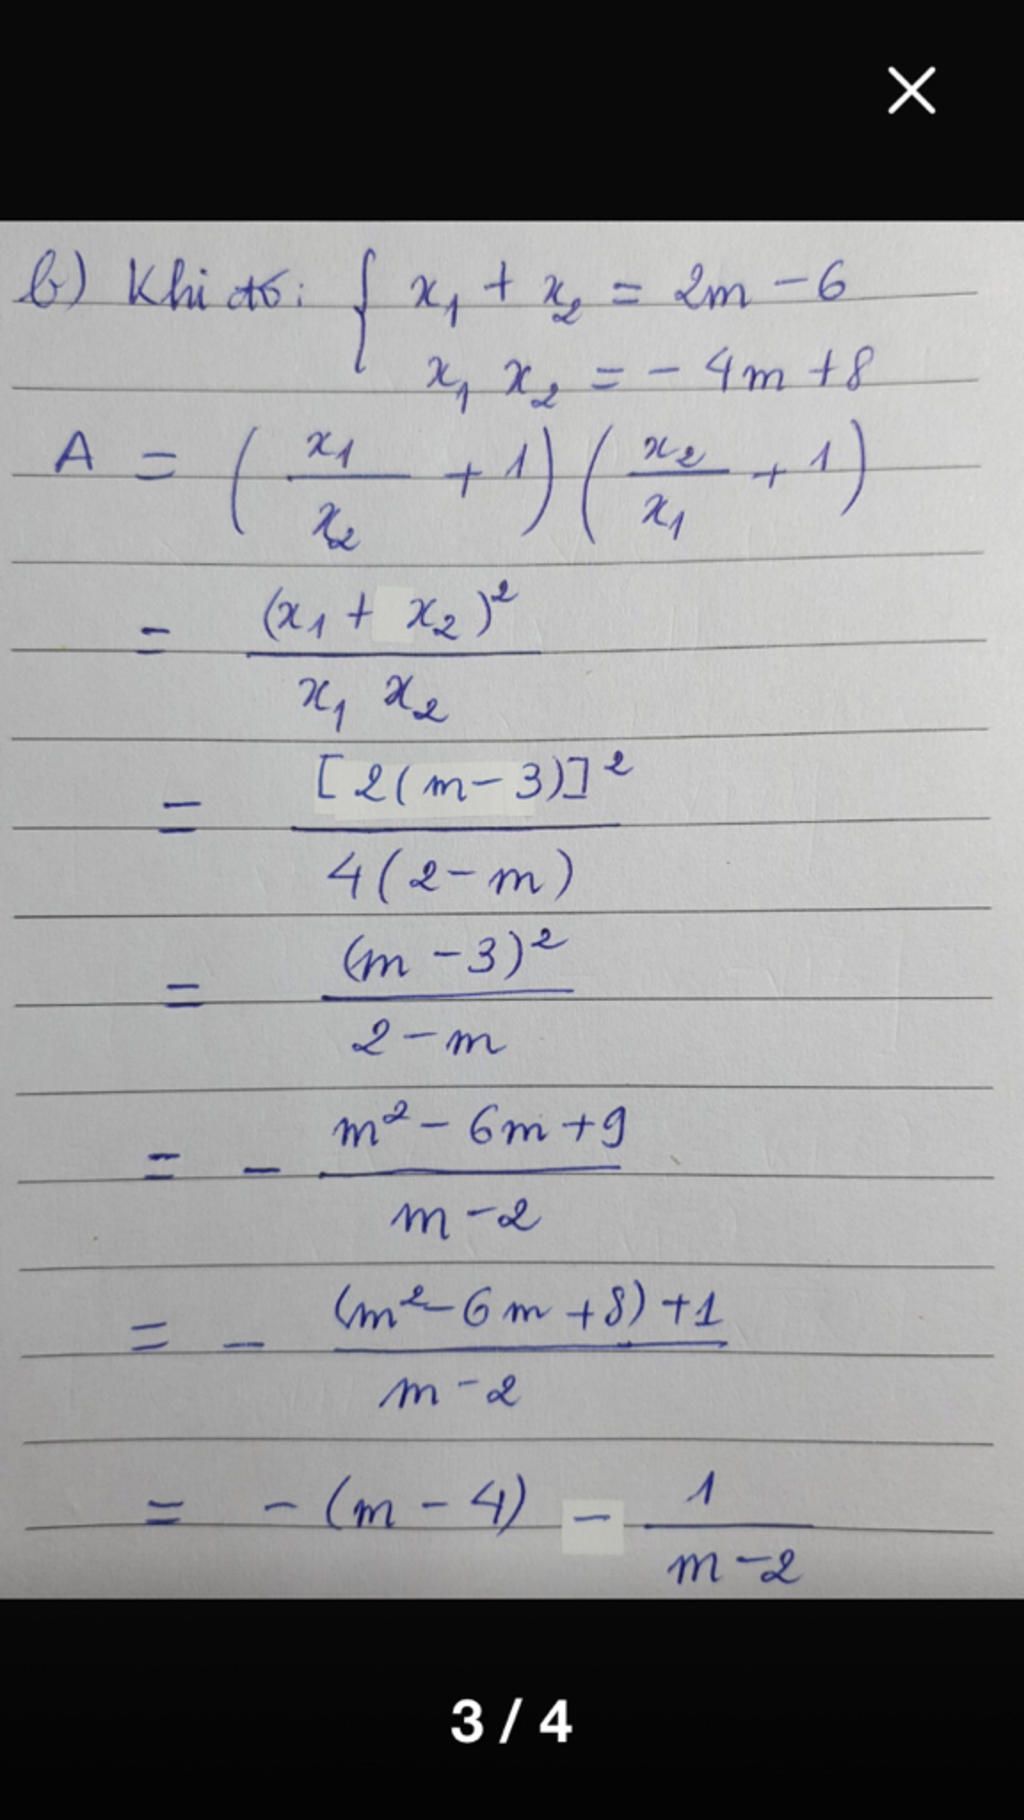 b) Khi đó: { x₁ + x₂ = 2m - 6
x₁ x₂ = - 4m + 8
A = ( x₁/x₂ + 1 ) ( x₂/x₁ + 1 )
= (x₁ + x₂)² / x₁ x₂
= [2(m-3)]² / 4(2-m)
= (m-3)² / 2-m
= - m² - 6m + 9 / m-2
= - (m² - 6m + 8) + 1 / m-2
= - (m - 4) - 1 / m-2
3 / 4